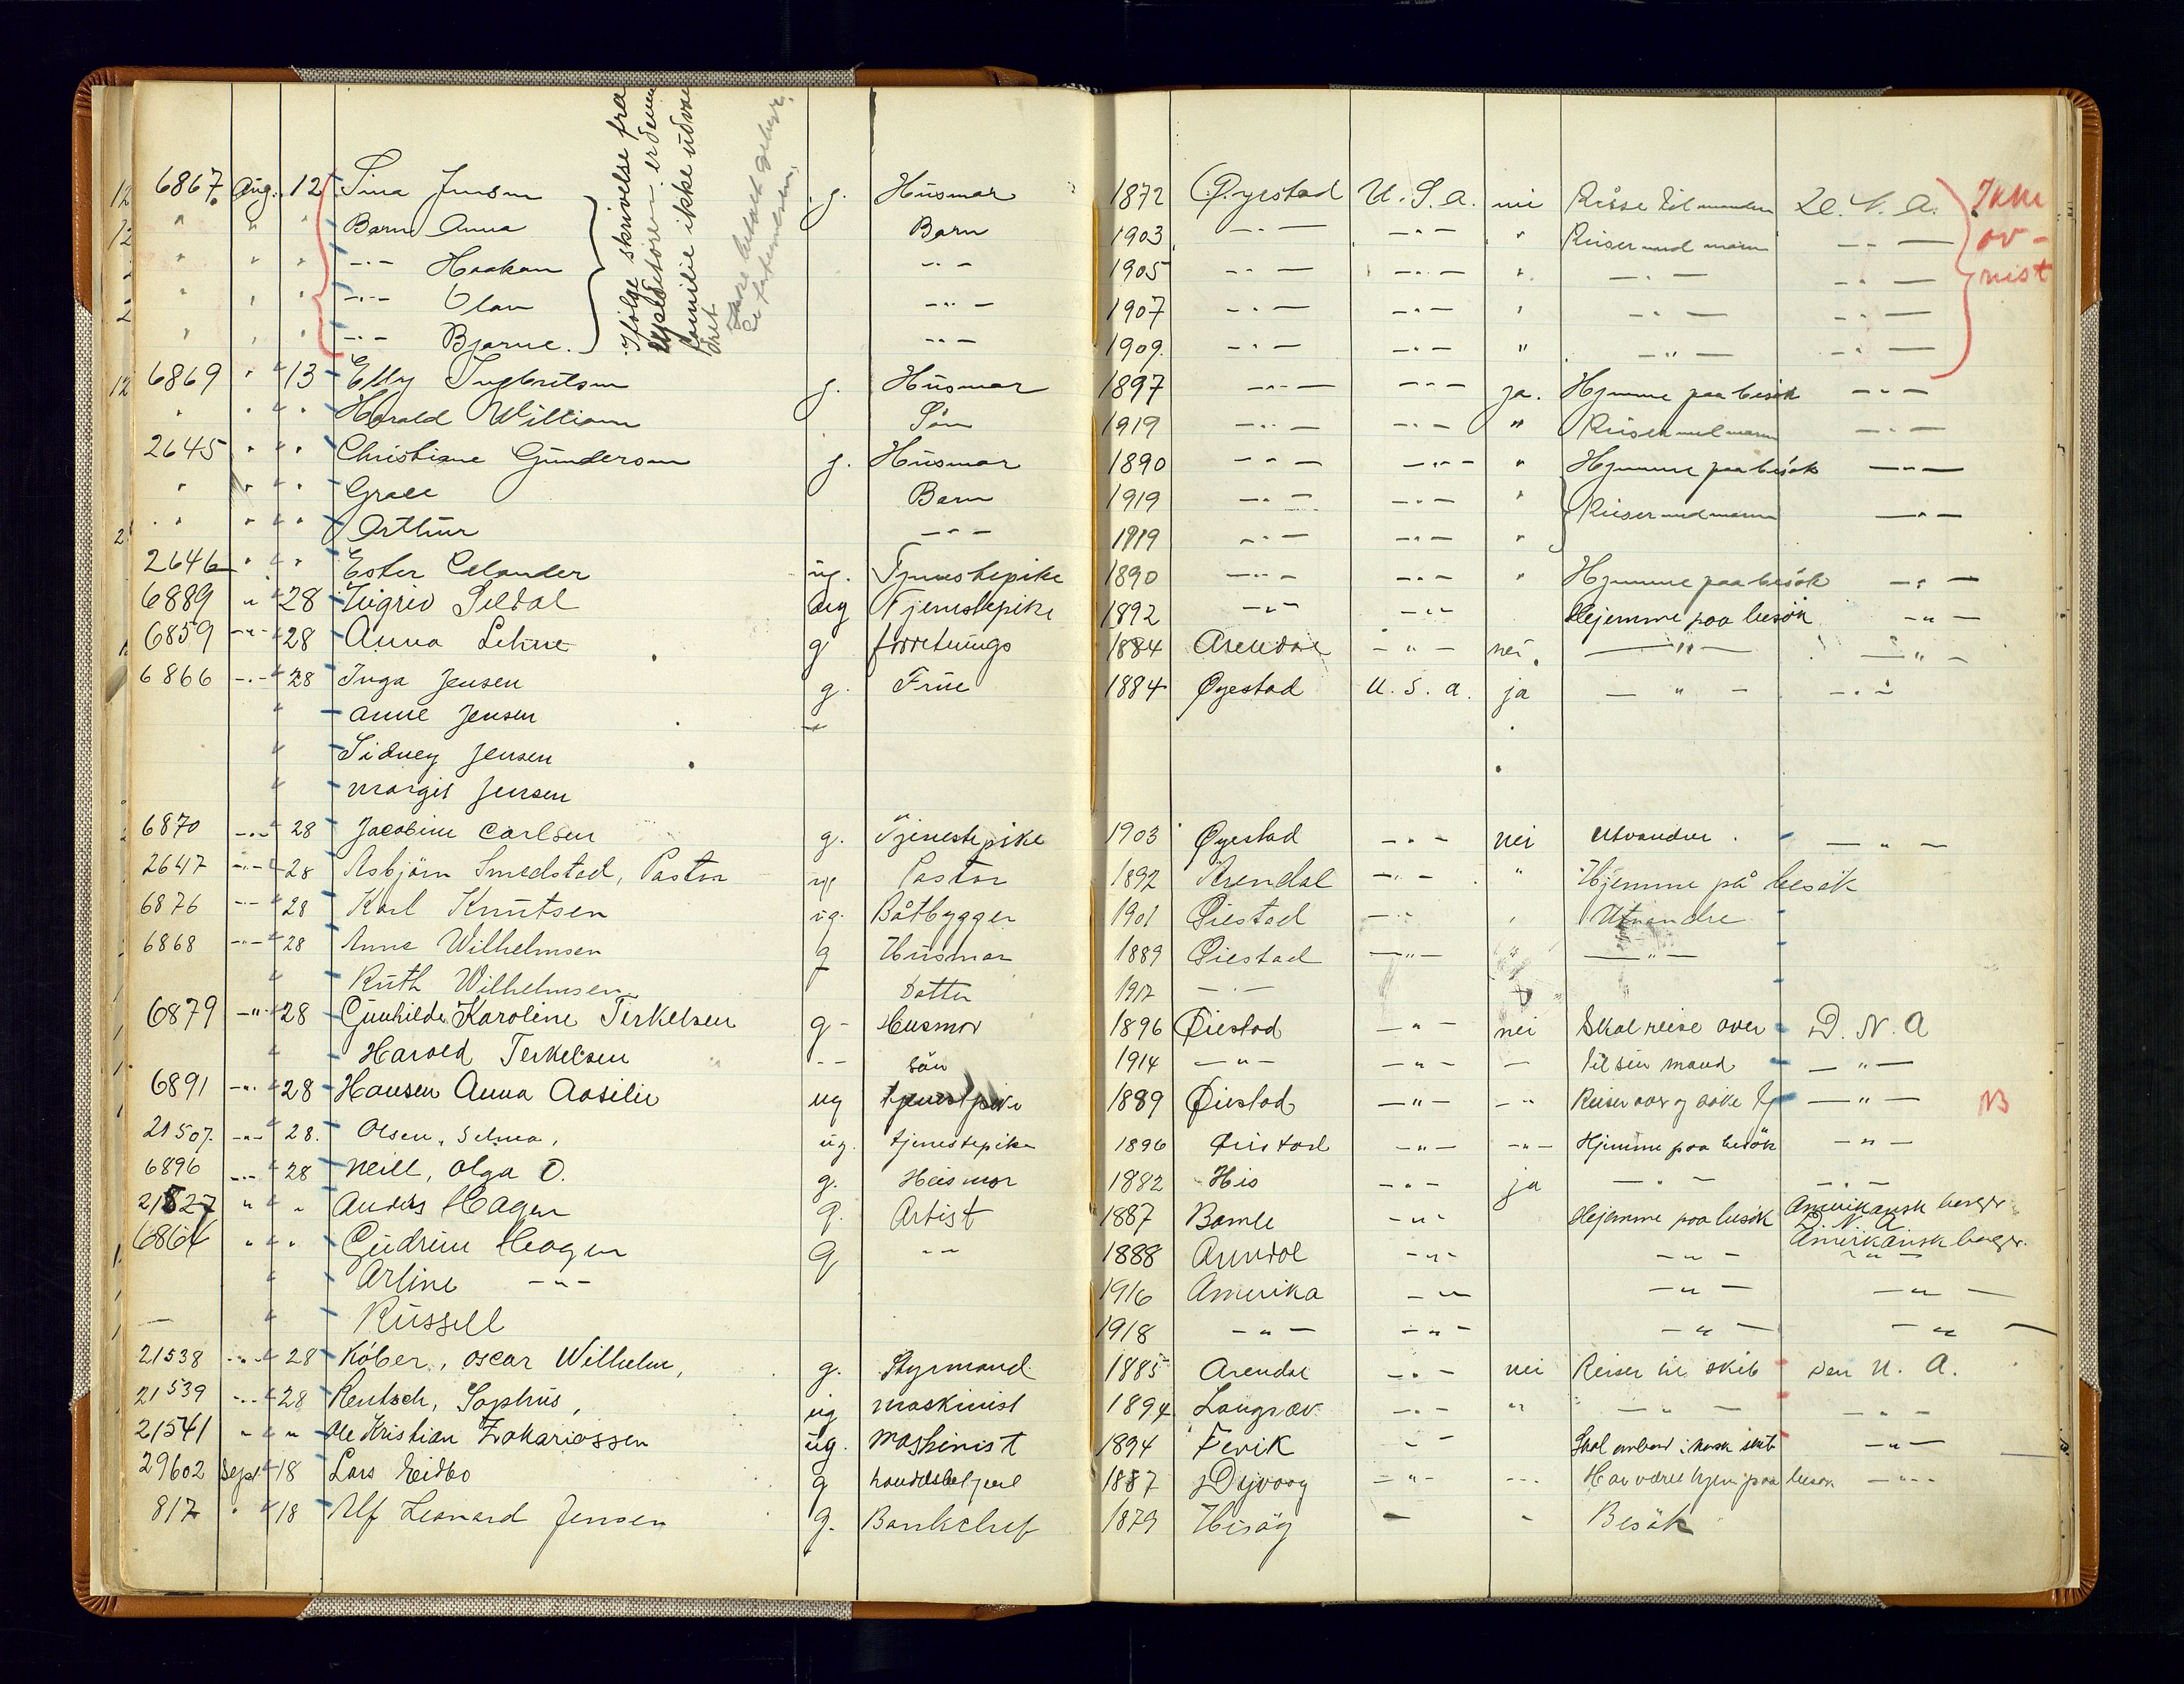 6867. Aug. 12 Sina Jensen g. Husmor 1872 Øyestad U.S.A. nei Reise til manden D.N.A. Ikke
" " " Barn Anna Barn 1903 -"- -"- " Reiser med moren -"- av-
" " " -"- Haakon -"- 1905 -"- -"- " -"- -"- reist
" " " -"- Olav -"- 1907 -"- -"- " -"- -"-
" " " -"- Bjarne. -"- 1909 -"- -"- " -"- -"-
Ifølge skrivelse fra
expeditøren er denne
familie ikke udvan
dret
6869 " 13 Elly Ingbretsen g. Husmor 1897 -"- -"- ja. Hjemme paa besøk -"-
" " " Harald William Søn 1919 -"- -"- " Reiser med moren -"-
2645 " " Christiane Gundersen g. Husmor 1890 -"- -"- " Hjemme paa besøk -"-
" " " Grace Barn 1919 -"- -"- " Reiser med moren -"-
" " " Arthur -"- 1919 -"- -"- "
2646 " " Ester Celander ug. Tjenestepike 1890 -"- -"- " Hjemme paa besøk -"-
6889 " 28 Sigrid Seldal ug Tjenestepike 1892 -"- -"- Hjemme paa besøk -"-
6859 -"- 28 Anna Lehne g forretnings 1884 Arendal -"- nei. -"- -"-
6866 -"- 28 Inga Jensen g. Frue 1884 Øyestad U.S.a. ja -"- -"-
" Anne Jensen -"-
" Sidney Jensen
" Margit Jensen
6870 -"- 28 Jacobine Carlsen g. Tjenestepike 1903 Øyestad -"- nei Utvandre. -"-
2647 -"- 28 Asbjørn Smedstad, Pastor ug Pastor 1892 Arendal -"- " Hjemme på besøk
6876 -"- 28 Karl Knutsen ug. Båtbygger 1901 Øiestad -"- " Utvandre
6868 -"- 28 Anna Wilhelmsen g Husmor 1889 Øiestad -"- " -"-
" Ruth Wilhelmsen Datter 1917 -"-
6879 -"- 28 Gunhilde Karoline Terkelsen g- Husmor 1896 Øiestad -"- nei Skal reise over D.N.A
" Harold Terkelsen -- søn 1914 -"- -"- — til sin mand -"-
6891 -"- 28 Hansen Anna Aasilie ug tjenestpike 1889 Øiestad -"- -"- Reiser over og søke hj -"- NB
21507. -"- 28. Olsen, Selma, ug. tjenestepike 1896 Øiestad -"- -"- Hjemme paa besøk -"-
6896 -"- 28 Neill, Olga O. g. Husmor 1882 His -"- ja -"- -"-
21527 " " Anders Hagen g. Artist 1887 Bamle -"- Hjemme paa besøk Amerikansk borger
D.N.A
6864 " " Gudrun Hagen g -"- 1888 Arendal -"- -"- Amerikansk borger. -"-
" Arline -"- 1916 Amerika -"- -"- -"-
— " Russell 1918 -"- -"- -"- -"-
21538 -"- 28 Köber, Oscar Wilhelm, g. Styrmand 1885 Arendal -"- nei Reiser til skib Den N. A.
21539 -"- 28 Rentsch, Sophus, ug maskinist 1894 Langsæv -"- " -"- -"-
21541 " " Ole Kristian Zakariassen ug. Maskinist 1894 Fevik -"- Skal ombord i norsk skib -"-
29602 Sept 18 Lars Eidbo g 1887 Dypvaag -"- -"- Har været hjem paa besøk -"-
817 " 18 Alf Leonard Jensen g. Bankchef 1879 Hisøy - - Besøk